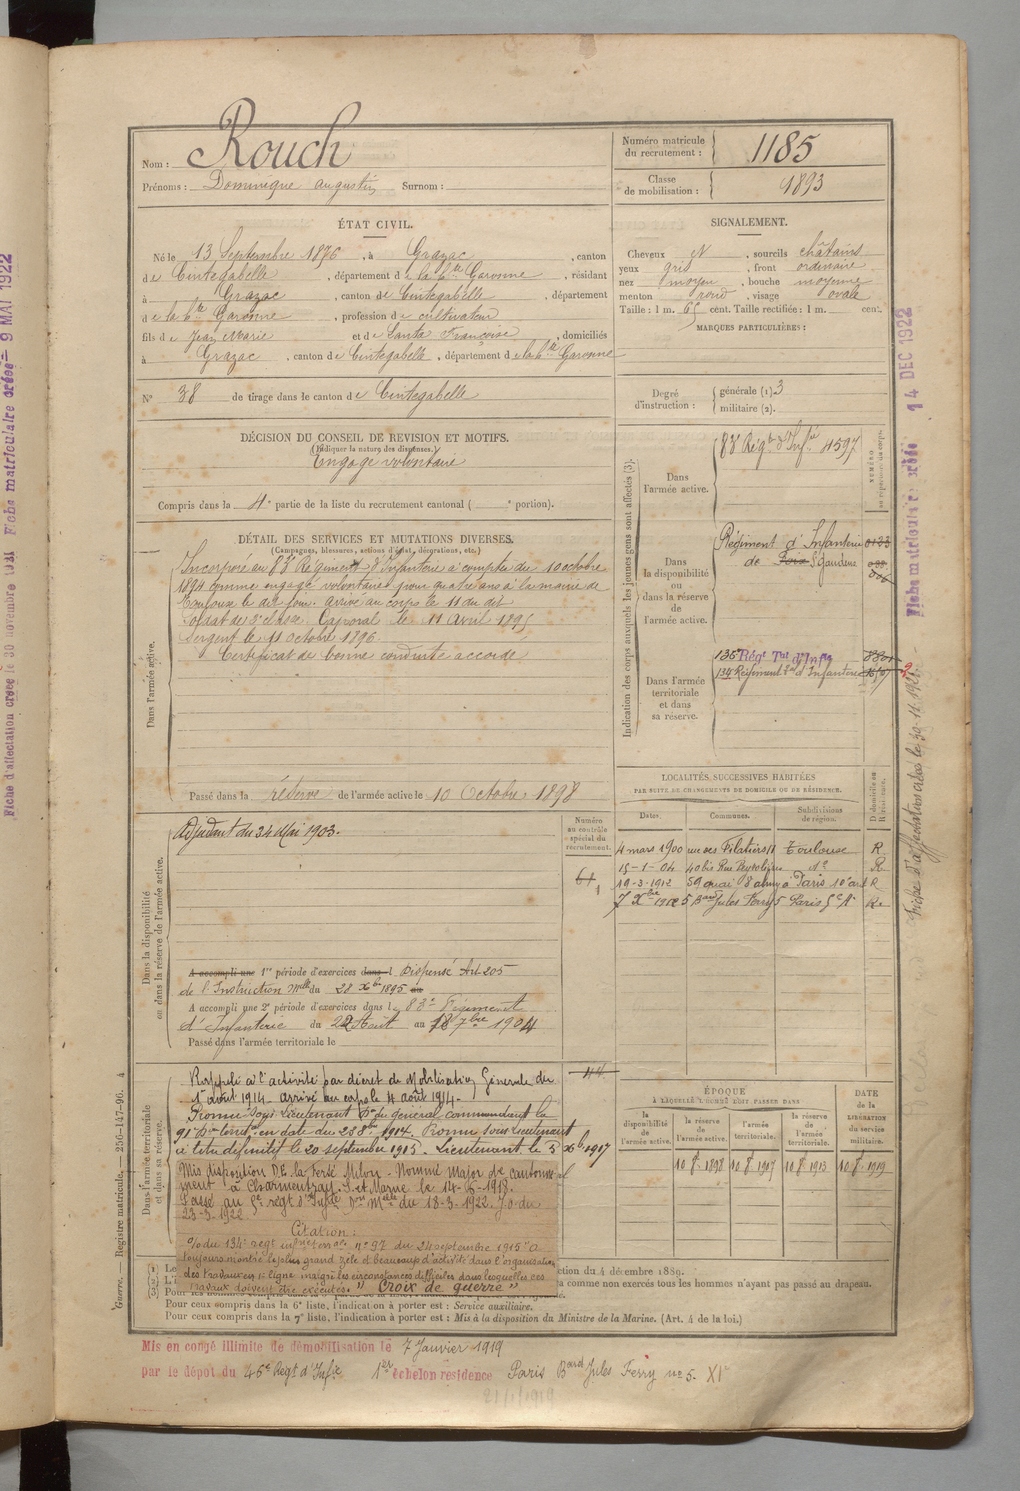 Nom : Rouch
Prénoms : Dominique Augustin Surnom :
Numéro matricule du recrutement : 1185
Classe de mobilisation : 1893
ÉTAT CIVIL.
Né le 13 Septembre 1876, à Grazac, canton
de Cintegabelle, département de la hte Garonne, résidant
à Grazac, canton de Cintegabelle, département
de la hte Garonne, profession de cultivateur
fils de Jean Marie et de Santa Françoise, domiciliés
à Grazac, canton de Cintegabelle, département de la hte Garonne
SIGNALEMENT.
Cheveux N, sourcils châtains
yeux gris, front ordinaire
nez moyen, bouche moyenne
menton rond, visage ovale
Taille : 1 m. 65 cent. Taille rectifiée : 1 m. cent.
MARQUES PARTICULIÈRES :
N° 38 de tirage dans le canton de Cintegabelle
Degré d'instruction : générale (1) 3
militaire (2).
DÉCISION DU CONSEIL DE REVISION ET MOTIFS.
(Indiquer la nature des dispenses.)
Engagé volontaire
Compris dans la 4e partie de la liste du recrutement cantonal ( e portion).
DÉTAIL DES SERVICES ET MUTATIONS DIVERSES.
(Campagnes, blessures, actions d'éclat, décorations, etc.)
Dans l'armée active.
Incorporé au 83e Régiment d'Infanterie à compter du 10 octobre
1894 comme engagé volontaire pour quatre ans à la mairie de
Toulouse le dit jour. Arrivé au corps le 11 du dit
Soldat de 2e classe. Caporal le 11 Avril 1895
Sergent le 11 octobre 1896.
Certificat de bonne conduite accordé
Passé dans la réserve de l'armée active le 10 Octobre 1898
Indication des corps auxquels les jeunes gens sont affectés (3).
NUMÉRO au répertoire du corps.
Dans l'armée active.
83 Régt d'Infie 4597
Dans la disponibilité ou dans la réserve de l'armée active.
Régiment d'Infanterie 0133
de Foix St Gaudens
Dans l'armée territoriale et dans sa réserve.
136e Régt Tal d'Infie
134 Régiment Tal d'Infanterie
LOCALITÉS SUCCESSIVES HABITÉES
PAR SUITE DE CHANGEMENTS DE DOMICILE OU DE RÉSIDENCE.
Dates. Communes. Subdivisions de région. D domicile ou R résidence.
4 mars 1900 rue des Filatiers 11 Toulouse R
15-1-04 40 bis Rue Peyrolières do R
19-3-1912 59 quai Valmy à Paris 10e art R
7 Xbre 1912 5 Bard Jules Ferry 5 Paris R
Dans la disponibilité ou dans la réserve de l'armée active.
Adjudant du 24 Mai 1903.
Numéro au contrôle spécial du recrutement.
61
A accompli une 1re période d'exercices dans l Dispensé Art 205
de l'Instruction Mlle du 28 Xbre 1895
A accompli une 2e période d'exercices dans le 83e Régiment
d'Infanterie du 22 Août au 18 7bre 1904
Passé dans l'armée territoriale le
Dans l'armée territoriale et dans sa réserve.
Rappelé à l'activité par décret de Mobilisation Générale du
1er août 1914. Arrivé au corps le 4 août 1914.
Promu sous Lieutenant Don du général commandant la
91e Don territ. en date du 28 8bre 1914. Promu sous Lieutenant
à titre définitif le 20 septembre 1915. Lieutenant le 5 Xbre 1917
Mis disposition D.E. la Ferté Milon. Nommé major de cantonne
ment à Charmentray. S. et Marne le 14-6-1918.
Passé au 5e regt d'Infie Don Mlle du 18-3-1922. J.O. du
23-3-1922
Citation :
O/o du 134e régt infrie terrale no 97 du 24 septembre 1915 "A
toujours montré le plus grand zèle et beaucoup d'activité dans l'organisation
des travaux en 1e ligne malgré les circonstances difficiles dans lesquelles ces
travaux doivent être exécutés. "Croix de guerre"
ÉPOQUE
À LAQUELLE L'HOMME DOIT PASSER DANS
la disponibilité de l'armée active. la réserve de l'armée active. l'armée territoriale. la réserve de l'armée territoriale.
DATE de la LIBÉRATION du service militaire.
10 8 1898 10 8 1907 10 8 1913 10 8 1919
ction du 4 décembre 1889.
a comme non exercés tous les hommes n'ayant pas passé au drapeau.
Pour ceux compris dans la 6e liste, l'indication à porter est : Service auxiliaire.
Pour ceux compris dans la 7e liste, l'indication à porter est : Mis à la disposition du Ministre de la Marine. (Art. 4 de la loi.)
Mis en congé illimité de démobilisation le 7 Janvier 1919
par le dépôt du 46e Régt d'Infie 1er échelon résidence Paris Bard Jules Ferry no 5. XIe
21/1/1919
Guerre. — Registre matricule. — 256-147-96. 4
Fiche d'affectation créée le 30 novembre 1921 Fiche matriculaire créée = 9 MAI 1922
Fiche matriculaire créée 14 DEC 1922
Fiche d'affectation créée le 30-11-1921.